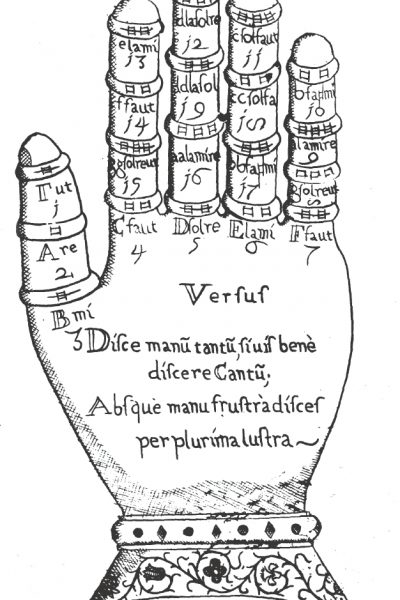 Γut
j
Are
2
Bmi
3
elami
j3
ffaut
j4
gſolreut
j5
Cfaut
4
dlaſolre
j2
ddlaſol
j9
aalamire
j6
Dſolre
5
cſolfaut
jj
ccſolfa
j8
bbfabmi
j7
Elami
6
bfabmi
j0
alamire
9
gſolreut
8
Ffaut
7
Verſus
Diſce manū tantū, ſi uis benè
diſcere Cantū;
Abſquè manu fruſtrà diſces
per plurima luſtra